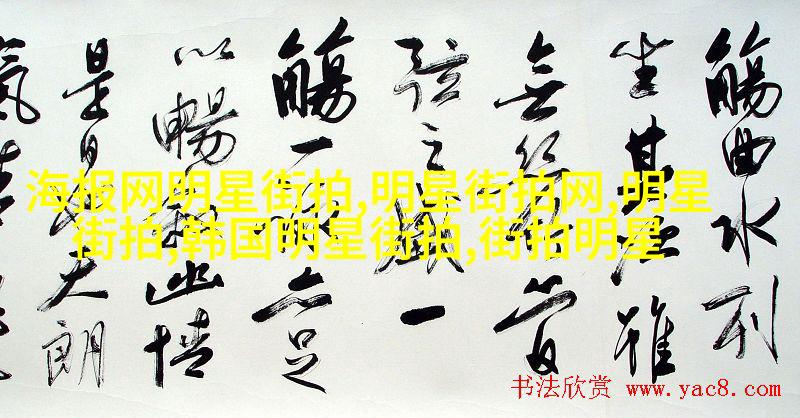 觴曲水列
坐其次雖
無絲竹管
弦之盛一
觴一詠亦足
以暢敘幽情
是日也天朗
氣清
海报网明星街拍,明星街拍网,明星
街拍,韩国明星街拍,街拍明星
书法欣赏 www.yac8.com